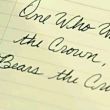 One Who W
the Crown,
Bears the Cr